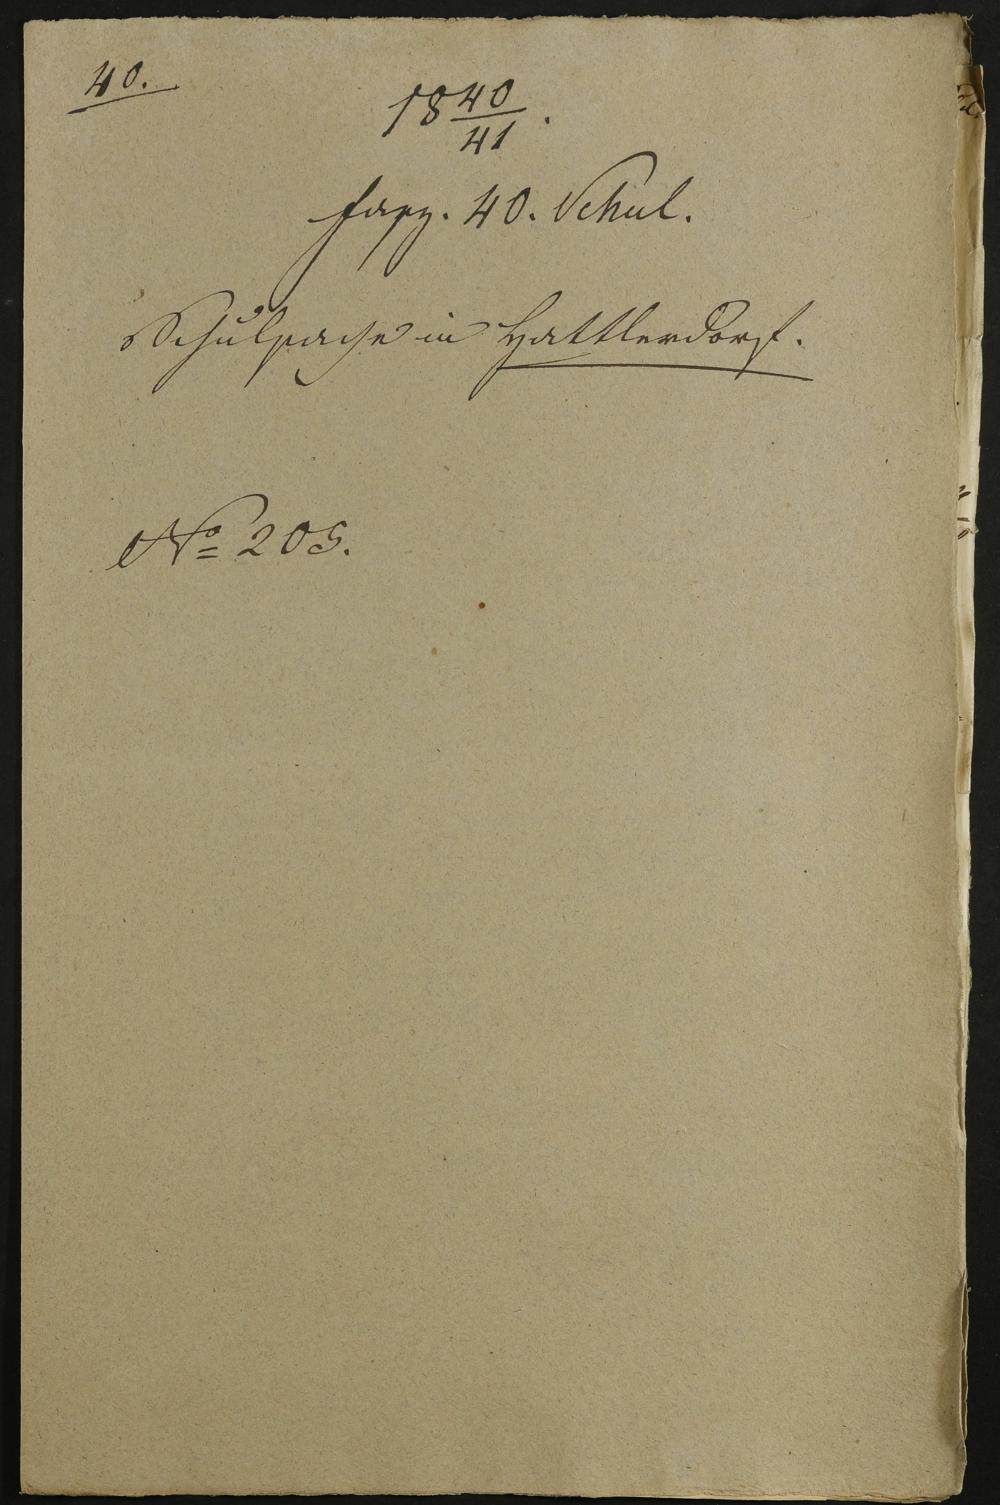 40.
18 40/41.
Fasz. 40. Schul.
Schulsache in Hattlerdorf.
No 205.